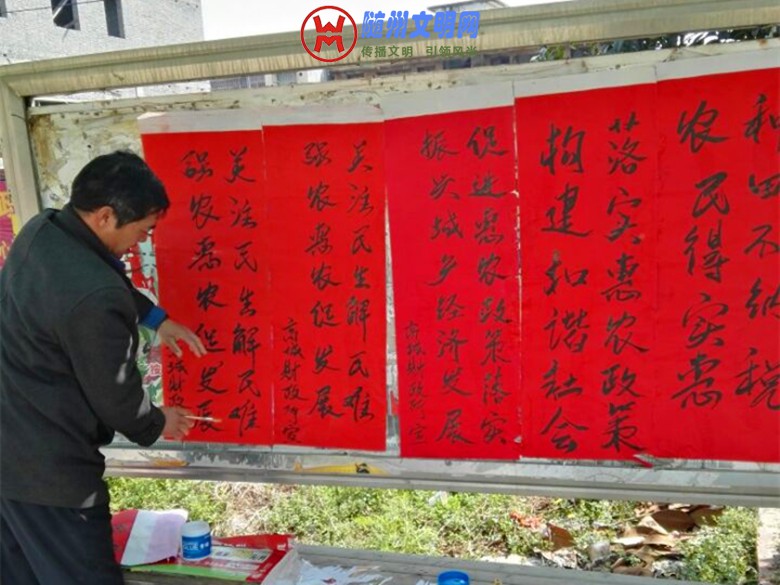 随州文明网
传播文明 引领风尚
关注民生解民难
强农惠农促发展
城财政
关注民生解民难
强农惠农促发展
高城财政所宣
促进惠农政策落实
振兴城乡经济发展
高城财政所宣
落实惠农政策
构建和谐社会
种田不纳税
农民得实惠